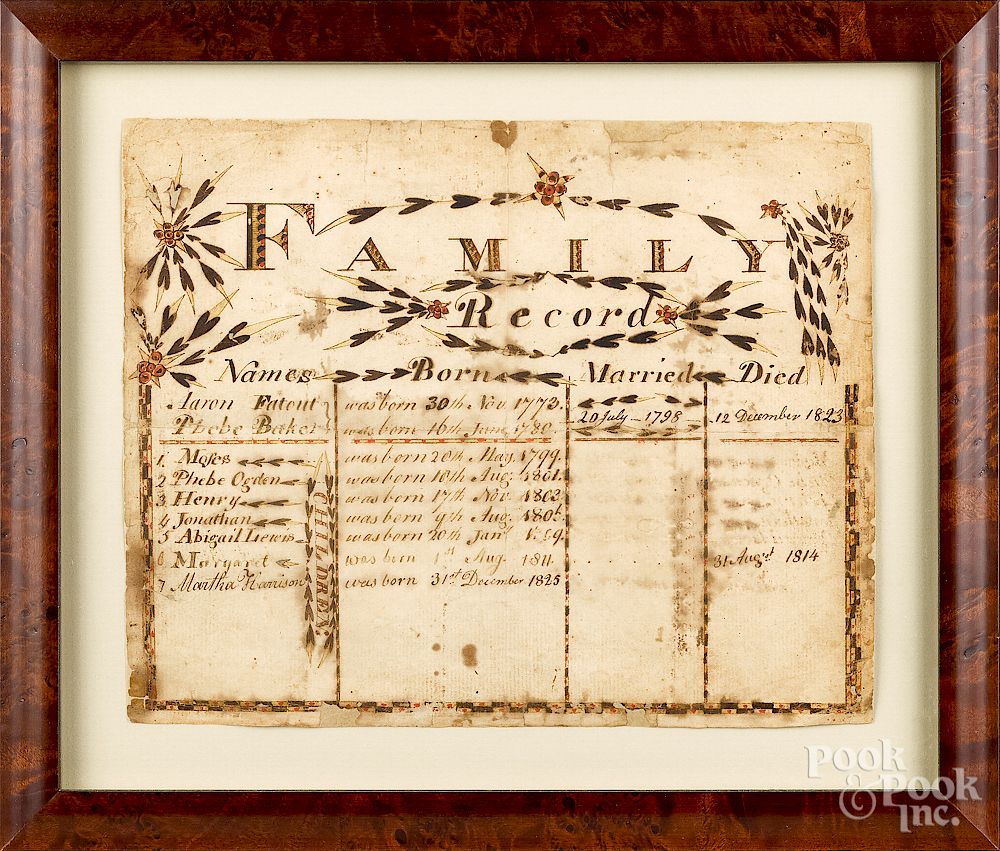 FAMILY
Record
Names Born Married Died
Aaron Fatout was born 30th Nov 1773. 20 July - 1798 12 December 1823
Phebe Baker was born 16th June 1780
CHILDREN:
1 Moses was born 20th May. 1799.
2 Phebe Ogden was born 18th Aug. 1801.
3 Henry was born 17th Nov. 1803
4 Jonathan was born 9th Aug. 1806.
5 Abigail Lewis was born 20th Jan.
6 Margaret was born 1st Aug. 1811 31 August 1814
7 Martha Harrison was born 31st December 1825
Pook & Pook Inc.